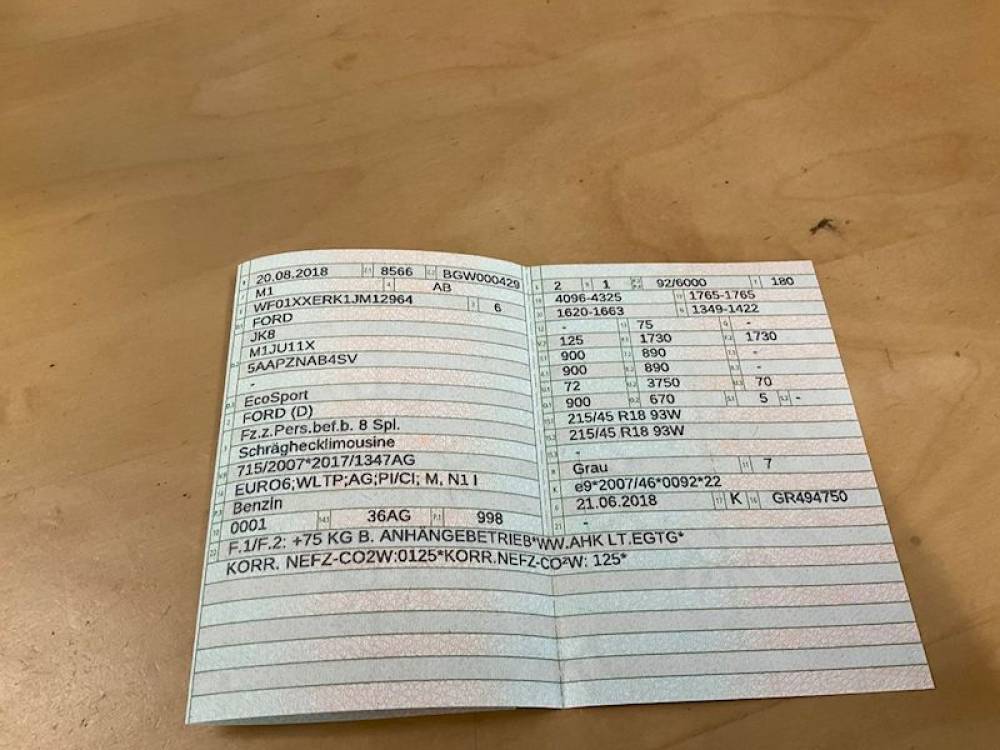 20.08.2018 8566 BGW000429
M1 AB
WF01XXERK1JM12964 6
FORD
JK8
M1JU11X
5AAPZNAB4SV
-
EcoSport
FORD (D)
Fz.z.Pers.bef.b. 8 Spl.
Schräghecklimousine
715/2007*2017/1347AG
EURO6;WLTP;AG;PI/CI; M, N1 I
Benzin
0001 36AG 998
2 1 92/6000 180
4096-4325 1765-1765
1620-1663 1349-1422
- 75 -
125 1730 1730
900 890 -
900 890 -
72 3750 70
900 670 5 -
215/45 R18 93W
215/45 R18 93W
-
Grau 7
e9*2007/46*0092*22
21.06.2018 K GR494750
-
F.1/F.2: +75 KG B. ANHÄNGEBETRIEB*WW.AHK LT.EGTG*
KORR. NEFZ-CO2W:0125*KORR.NEFZ-CO²W: 125*